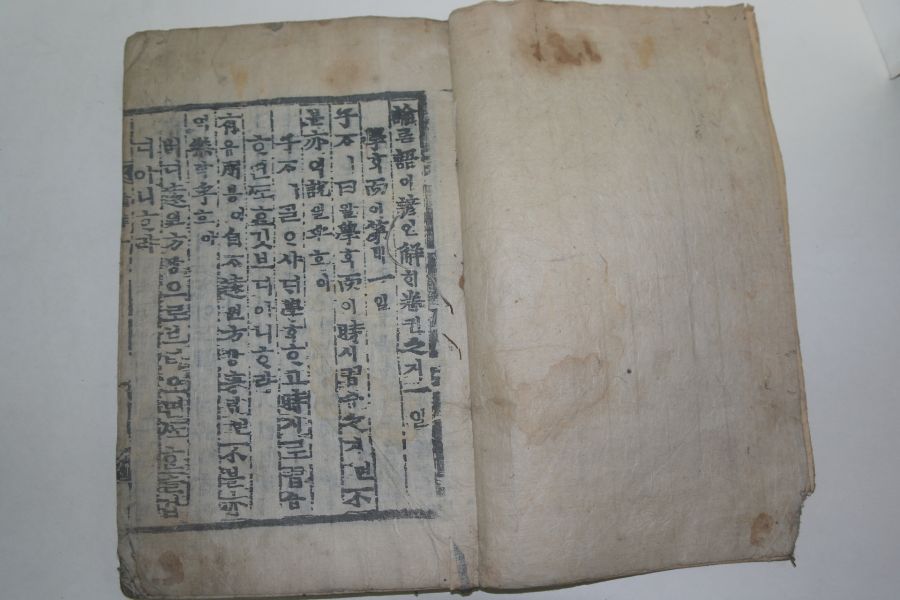 論론語어諺언解ᄒᆡ卷권之지一일
學ᄒᆞᆨ而이第뎨一일
子ᄌᆞㅣ曰왈學ᄒᆞᆨ而이時시習습之지면不
亦역說열乎호아
子ᄌᆞㅣᄀᆞᆯᄋᆞ샤ᄃᆡ學ᄒᆞᆨᄒᆞ고時시로習습
ᄒᆞ면ᄯᅩᄒᆞᆫ깃브디아니ᄒᆞ랴
有유朋븡이自ᄌᆞ遠원方방來ᄅᆡ면不블亦
역樂락乎호아
버디遠원方방으로브터오면ᄯᅩᄒᆞᆫ즐겁
디아니ᄒᆞ랴